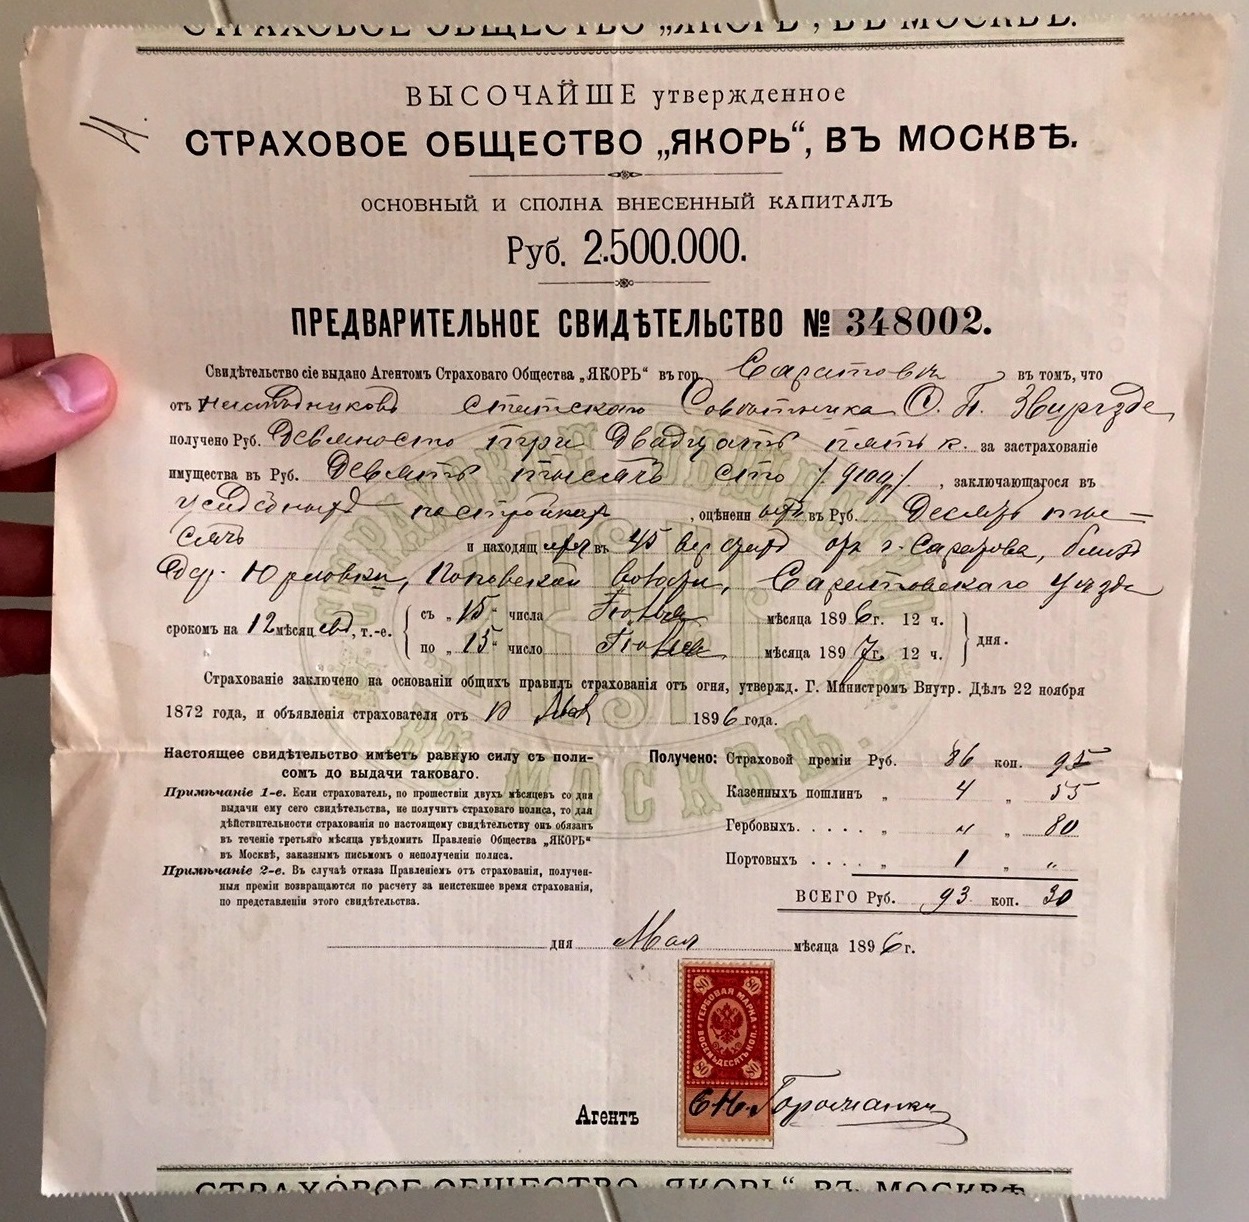 СТРАХОВОЕ ОБЩЕСТВО „ЯКОРЬ“, ВЪ МОСКВѢ.
ВЫСОЧАЙШЕ утвержденное
СТРАХОВОЕ ОБЩЕСТВО „ЯКОРЬ“, ВЪ МОСКВѢ.
ОСНОВНЫЙ И СПОЛНА ВНЕСЕННЫЙ КАПИТАЛЪ
Руб. 2.500.000.
ПРЕДВАРИТЕЛЬНОЕ СВИДѢТЕЛЬСТВО № 348002.
Свидѣтельство сіе выдано Агентомъ Страховаго Общества „ЯКОРЬ“ въ гор. Саратовѣ въ томъ, что
отъ наслѣдниковъ Статскаго Совѣтника О. П. Звирзде
получено Руб. Девяносто три двадцать пять к. за застрахованіе
имущества въ Руб. Девять тысячъ сто , заключающагося въ
усадебныхъ постройкахъ , оцѣненн въ Руб. Десять ты-
сячъ и находящ въ 45 верстахъ отъ г. Саратова, близъ
дер. Юрловки, Поповской волости, Саратовскаго уѣзда
срокомъ на 12 мѣсяцевъ, т.-е. съ „15“ числа Іюня мѣсяца 1896 г. 12 ч.
по „15“ число Іюня мѣсяца 1897 г. 12 ч. дня.
Страхованіе заключено на основаніи общихъ правилъ страхованія отъ огня, утвержд. Г. Министромъ Внутр. Дѣлъ 22 ноября
1872 года, и объявленія страхователя отъ Мая 1896 года.
Настоящее свидѣтельство имѣетъ равную силу съ поли-
сомъ до выдачи таковаго.
Примѣчаніе 1-е. Если страхователь, по прошествіи двухъ мѣсяцевъ со дня
выдачи ему сего свидѣтельства, не получитъ страховаго полиса, то для
дѣйствительности страхованія по настоящему свидѣтельству онъ обязанъ
въ теченіе третьяго мѣсяца увѣдомить Правленіе Общества „ЯКОРЬ“
въ Москвѣ, заказнымъ письмомъ о неполученіи полиса.
Примѣчаніе 2-е. Въ случаѣ отказа Правленіемъ отъ страхованія, получен-
ныя преміи возвращаются по расчету за неистекшее время страхованія,
по представленіи этого свидѣтельства.
Получено: Страховой преміи Руб. 86 коп. 95
Казенныхъ пошлинъ „ 4 „ 55
Гербовыхъ. . . . . „ „ „ 80
Портовыхъ . . . . „ 1 „ „
ВСЕГО Руб. 93 коп. 30
дня Мая мѣсяца 1896 г.
80 80
ГЕРБОВАЯ МАРКА
ВОСЕМЬДЕСЯТЪ КОП.
80 80
Агентъ
СТРАХОВОЕ ОБЩЕСТВО „ЯКОРЬ“ ВЪ МОСКВѢ
СТРАХОВОЕ ОБЩЕСТВО
ВЪ МОСКВѢ.